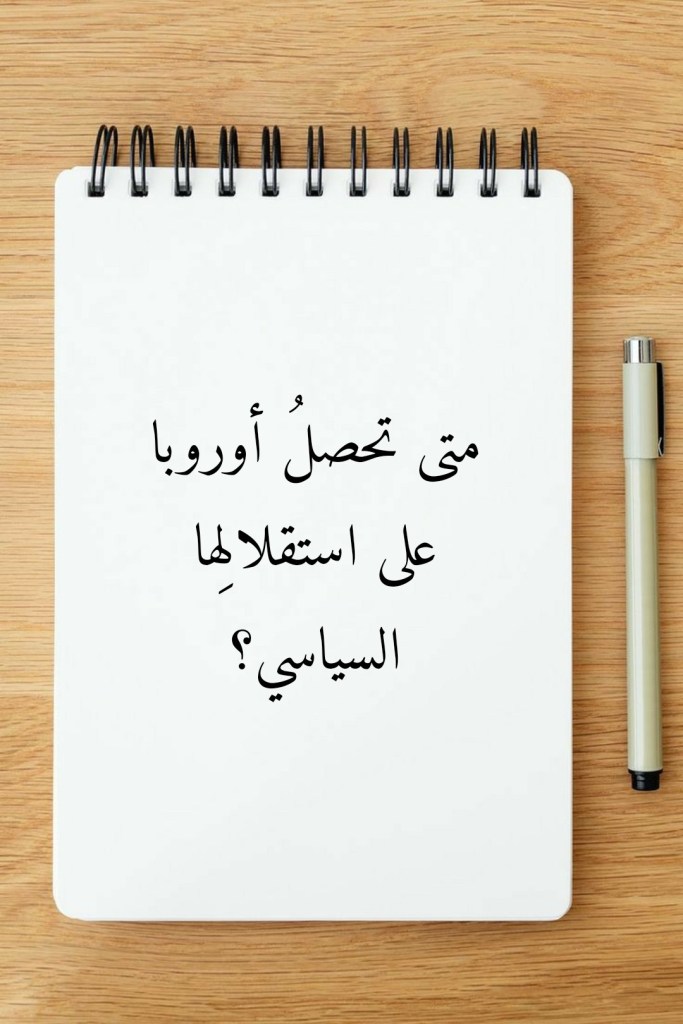 متى تحصلُ أوروبا
على استقلالِها
السياسي؟